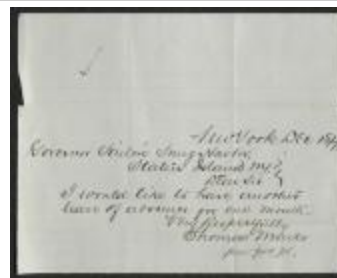 New York Dec 18
Governor Sailors Snug Harbor,
Staten Island N.Y.
Dear Sir
I would like to have another
leave of absence for one month.
Very Respectfully
Thomas